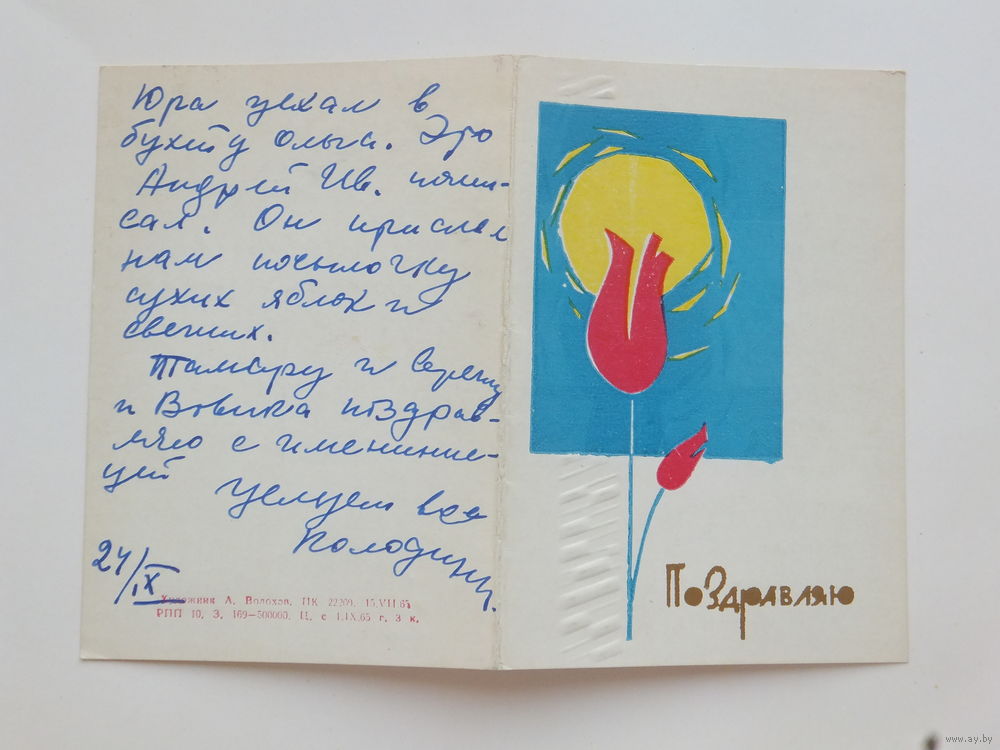 Юра уехал в
бухту Ольга. Это
Андрей Ив. напи-
сал. Он прислал
нам посылочку
сухих яблок и
свежих.
Тамару и Сережу
и Вовика поздрав-
ляю с именинни-
цей
Целуем все
24/IX
Художник А. Волохов. ПК 22209. 15.VII 65
РПП 10. З. 169—500000. Ц. с 1.IX.65 г. 3 к.
Поздравляю
www.ay.by